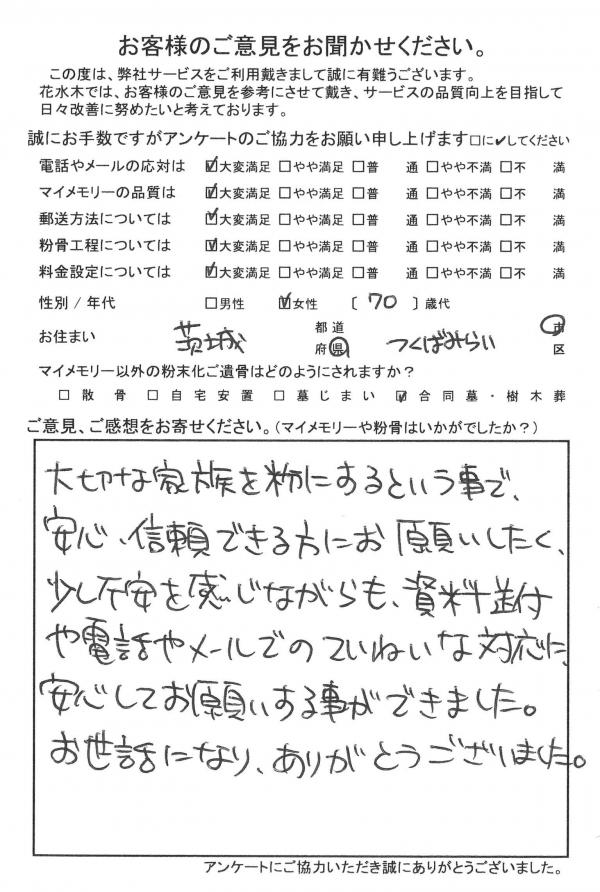 お客様のご意見をお聞かせください。
この度は、弊社サービスをご利用戴きまして誠に有難うございます。
花水木では、お客様のご意見を参考にさせて戴き、サービスの品質向上を目指して
日々改善に努めたいと考えております。
誠にお手数ですがアンケートのご協力をお願い申し上げます□に✔してください
電話やメールの応対は ☑大変満足 □やや満足 □普 通 □やや不満 □不 満
マイメモリーの品質は ☑大変満足 □やや満足 □普 通 □やや不満 □不 満
郵送方法については ☑大変満足 □やや満足 □普 通 □やや不満 □不 満
粉骨工程については ☑大変満足 □やや満足 □普 通 □やや不満 □不 満
料金設定については ☑大変満足 □やや満足 □普 通 □やや不満 □不 満
性別 / 年代 □男性 ☑女性 〔 70 〕歳代
お住まい 茨城 都道府県 つくばみらい 市区
マイメモリー以外の粉末化ご遺骨はどのようにされますか？
□散骨 □自宅安置 □墓じまい ☑合同墓・樹木葬
ご意見、ご感想をお寄せください。(マイメモリーや粉骨はいかがでしたか？)
大切な家族を粉にするという事で、
安心、信頼できる方にお願いしたく、
少し不安を感じながらも、資料送付
や電話やメールでのていねいな対応に、
安心してお願いする事ができました。
お世話になり、ありがとうございました。
アンケートにご協力いただき誠にありがとうございました。